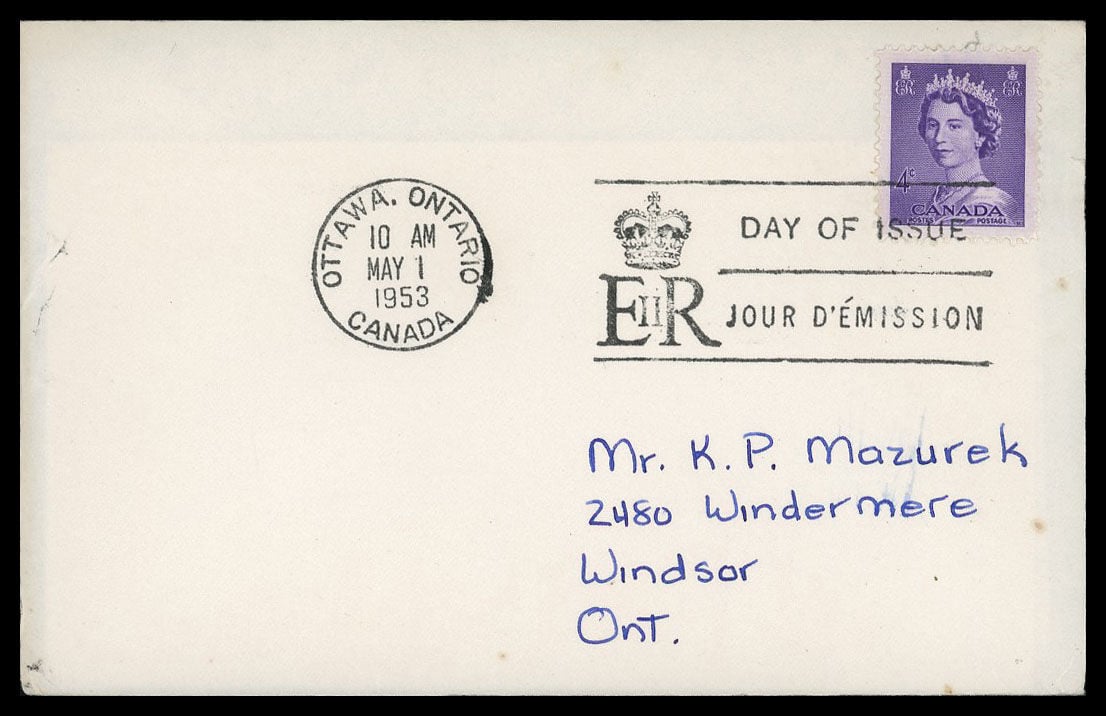 ER ER
4c
CANADA
POSTES POSTAGE
OTTAWA. ONTARIO
10 AM
MAY 1
1953
CANADA
DAY OF ISSUE
EIIR JOUR D'ÉMISSION
Mr. K. P. Mazurek
2480 Windermere
Windsor
Ont.